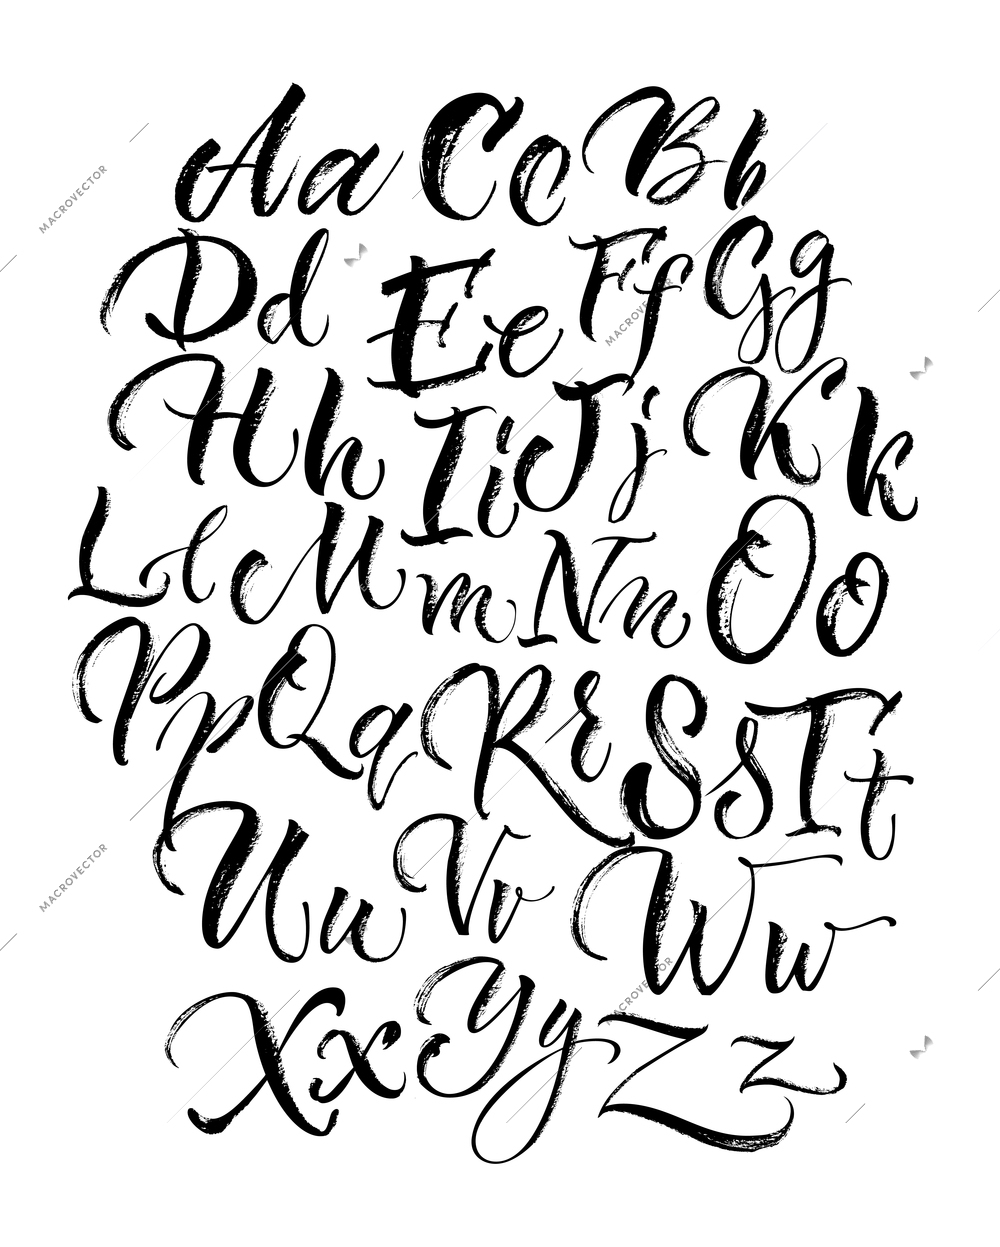 Aa Cc Bb
Dd Ee Ff Gg
Hh Ii Jj Kk
Ll Mm Nn Oo
Pp Qq Rr Ss Tt
Uu Vv Ww
Xx Yy Zz
MACROVECTOR
MACROVECTOR
MACROVECTOR
MACROVECTOR